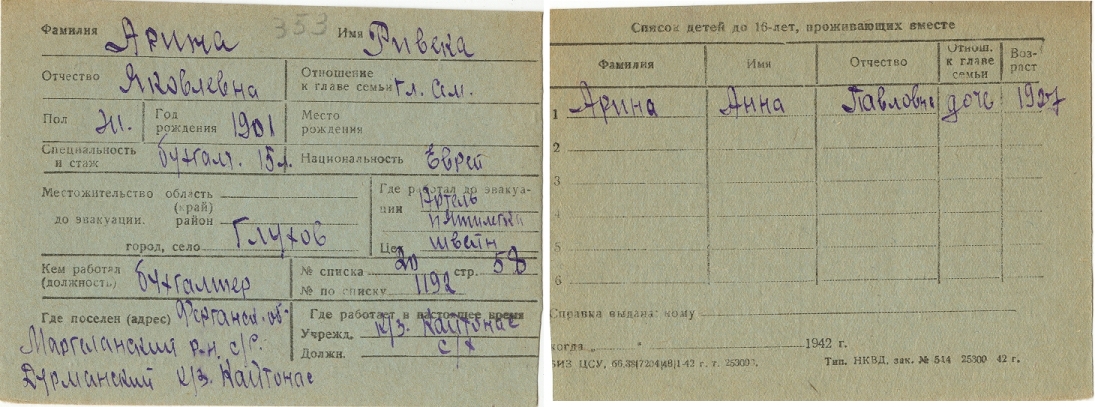 353
Фамилия Арина Имя Ривека
Отчество Яковлевна Отношение к главе семьи гл. сем.
Пол Ж. Год рождения 1901 Место рождения
Специальность и стаж бухгалт. 15 л. Национальность Еврей
Местожительство до эвакуации. область (край)
район
город, село Глухов
Где работал до эвакуации Артель
пятилетка
Цех швейн
Кем работал (должность) бухгалтер № списка 20 стр. 58
№ по списку 1192
Где поселен (адрес) Ферганск. об.
Маргеланский р-н. с/с.
Дурманский к/з. Кайтонас
Где работает в настоящее время
Учрежд. к/з. Кайтонас
Должн. с/х
Список детей до 16-лет, проживающих вместе
Фамилия Имя Отчество Отнош. к главе семьи Возраст
1 Арина Анна Павловна дочь 1927
2
3
4
5
6
Справка выдана: кому
когда „ “ 1942 г.
Тип. НКВД. зак. № 514 25300 42 г.